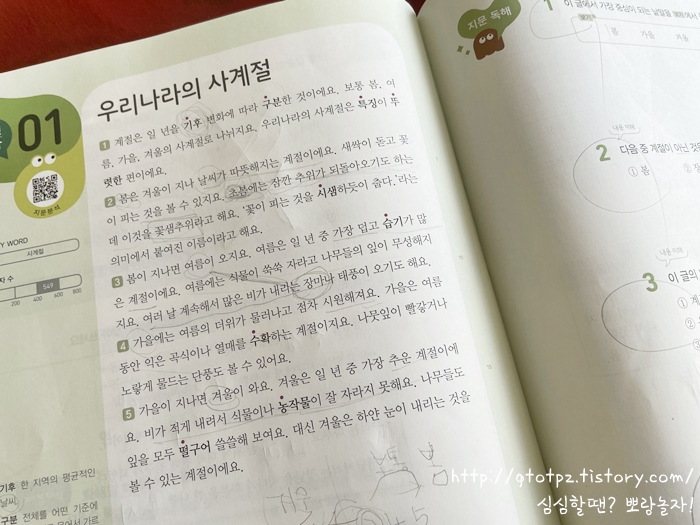 01
지문분석
Y WORD
사계절
자 수
200 400 549 600 800
기후 한 지역의 평균적인
날씨.
구분 전체를 어떤 기준에
우리나라의 사계절
1 계절은 일 년을 기후 변화에 따라 구분한 것이에요. 보통 봄, 여
름, 가을, 겨울의 사계절로 나뉘지요. 우리나라의 사계절은 특징이 뚜
렷한 편이에요.
2 봄은 겨울이 지나 날씨가 따뜻해지는 계절이에요. 새싹이 돋고 꽃
이 피는 것을 볼 수 있지요. 초봄에는 잠깐 추위가 되돌아오기도 하는
데 이것을 꽃샘추위라고 해요. '꽃이 피는 것을 시샘하듯이 춥다.'라는
의미에서 붙여진 이름이라고 해요.
3 봄이 지나면 여름이 오지요. 여름은 일 년 중 가장 덥고 습기가 많
은 계절이에요. 여름에는 식물이 쑥쑥 자라고 나무들의 잎이 무성해지
지요. 여러 날 계속해서 많은 비가 내리는 장마나 태풍이 오기도 해요.
4 가을에는 여름의 더위가 물러나고 점차 시원해져요. 가을은 여름
동안 익은 곡식이나 열매를 수확하는 계절이지요. 나뭇잎이 빨갛거나
노랗게 물드는 단풍도 볼 수 있어요.
5 가을이 지나면 겨울이 와요. 겨울은 일 년 중 가장 추운 계절이에
요. 비가 적게 내려서 식물이나 농작물이 잘 자라지 못해요. 나무들도
잎을 모두 떨구어 쓸쓸해 보여요. 대신 겨울은 하얀 눈이 내리는 것을
볼 수 있는 계절이에요.
겨울
지문 독해
1 이 글에서 가장 중심이 되는 낱말을
봄 가을 겨울
내용 이해
2 다음 중 계절이 아닌 것은
① 봄
내용 이해
3 이 글의
http://qtotpz.tistory.com/
심심할땐? 뽀람놀자!